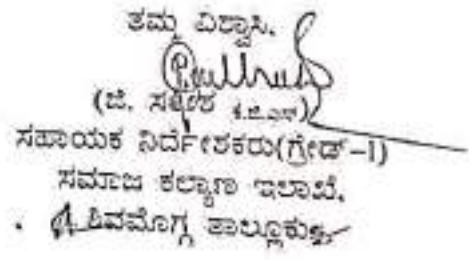 ತಮ್ಮ ವಿಶ್ವಾಸಿ,
(ಜಿ. ಸತೀಶ ಕ.ಜಿ.ಎಸ್)
ಸಹಾಯಕ ನಿರ್ದೇಶಕರು(ಗ್ರೇಡ್-I)
ಸಮಾಜ ಕಲ್ಯಾಣ ಇಲಾಖೆ,
ಶಿವಮೊಗ್ಗ ತಾಲ್ಲೂಕು